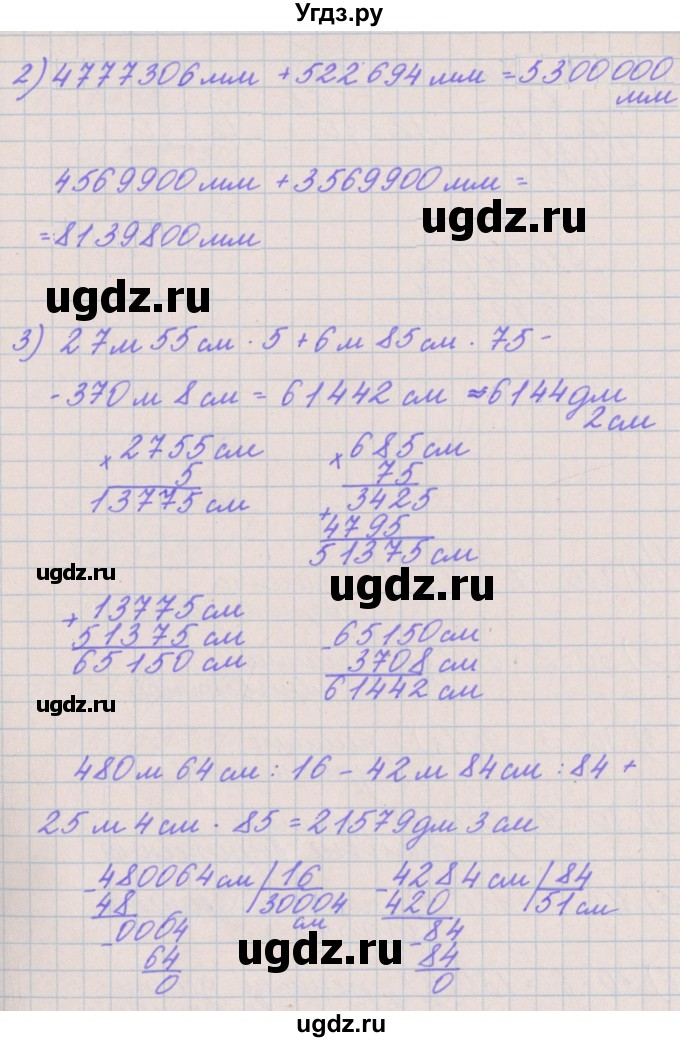 Угдз.ру
2) 4777306 мм + 522694 мм = 5300000
мм
4569900 мм + 3569900 мм =
= 8139800 мм
ugdz.ru
ugdz.ru
3) 27 м 55 см · 5 + 6 м 85 см · 75 -
- 370 м 8 см = 61442 см = 6144 дм
2 см
× 2755 см × 685 см
5 75
13775 см + 3425
4795
51375 см
ugdz.ru
ugdz.ru
+ 13775 см - 65150 см
51375 см 3708 см
65150 см 61442 см
ugdz.ru
480 м 64 см : 16 - 42 м 84 см : 84 +
25 м 4 см · 85 = 21579 дм 3 см
- 480064 см 16 - 4284 см 84
48 30004 420 51 см
- 0064 см - 84
64 84
0 0
ugdz.ru
ugdz.ru